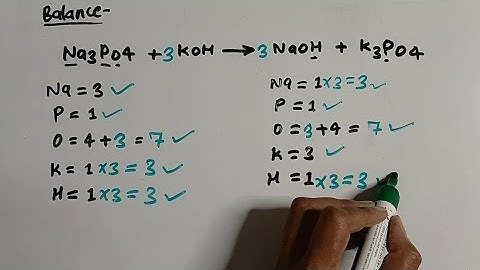 Balance-
Na3PO4 + 3KOH → 3NaOH + K3PO4
Na = 3 ✓
P = 1 ✓
O = 4 + 3 = 7 ✓
K = 1 × 3 = 3 ✓
H = 1 × 3 = 3 ✓
Na = 1 × 3 = 3 ✓
P = 1 ✓
O = 3 + 4 = 7 ✓
K = 3 ✓
H = 1 × 3 = 3 ✓